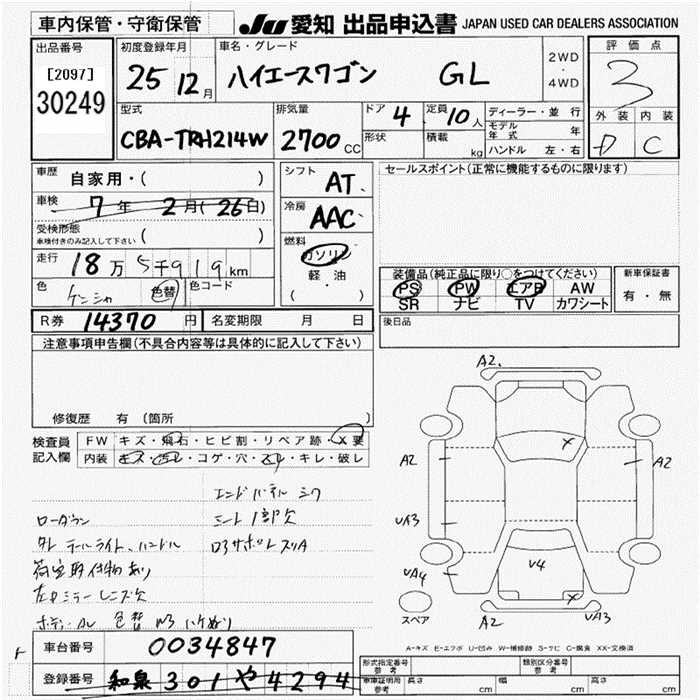 車内保管・守衛保管
JU 愛知 出品申込書 JAPAN USED CAR DEALERS ASSOCIATION
出品番号
[2097]
30249
初度登録年月
25 12月
車名・グレード
ハイエースワゴン GL
2WD
・
4WD
評価点
3
外装 内装
D C
型式
CBA-TRH214W
排気量
2700 CC
ドア 4
形状
定員 10人
積載 kg
ディーラー・並行
モデル年式 年
ハンドル 左・右
車歴 自家用・( )
車検 7年 2月(26日)
受検形態
車検付きのみ記入して下さい ( )
走行 18万5千919km
色 色替 色コード
シフト AT
冷房 AAC
燃料
ガソリン
軽油
( )
セールスポイント(正常に機能するものに限ります)
装備品(純正品に限り○をつけてください)
PS PW エアB AW
SR ナビ TV カワシート
新車保証書
有・無
R券 14370円 名変期限 月 日
後日品
注意事項申告欄(不具合内容等は具体的に記入して下さい)
修復歴 有 (箇所 )
検査員
記入欄
FW キズ・飛石・ヒビ割・リペア跡・X要
内装 キズ・汚レ・コゲ・穴・スレ・キレ・破レ
エンドパネル
ローダウン
テールライト、ハンドル
荷室取付物あり
左ロミラーレンズ欠
色替
A2.
A2
UA3
UA4
A2
V4
A2
UA3
スペア
A-キズ E-エクボ U-凹み W-補修跡 S-サビ C-腐食 XX-交換済
車台番号 0034847
登録番号 和泉 301 や 4294
形式指定番号
参考
類別区分番号
参考
車庫証明用
参考
長さ cm
幅 cm
高さ cm